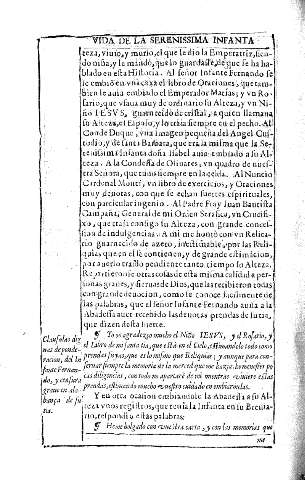 VIDA DE LA SERENISSIMA INFANTA
teza, viuio, y murio, el que le dio la Emperatriz, sien-
do niña, y le mandò, que lo guardasse, de que se ha ha-
blado en esta Historia. Al señor Infante Fernando se
le embiò en vna caxa el libro de Oraciones, que tam-
bien le auia embiado el Emperador Matias; y vn Ro-
sario, que vsaua muy de ordinario su Alteza, y vn Ni-
ño IESVS, guarnecido de cristal, a quien llamaua
su Alteza, el Esposo, y lo traìa siempre en el pecho. Al
Conde Duque, vna imagen pequeña del Angel Cus-
todio, y de santa Barbara, que era la misma que la Se-
renissima Infanta doña Isabel auia embiado a su Al-
teza. A la Condessa de Oliuares, vn quadro de nues-
tra Señora, que tenia siempre en la celda. Al Nuncio
Cardenal Monti, vn libro de exercicios, y Oraciones
muy deuotas, con que se echan suertes espirituales,
con particular ingenio. Al Padre Fray Iuan Bautista
Campaña, General de mi Orden Serafica, vn Crucifi-
xo, que traìa consigo su Alteza, con grande conces-
sion de indulgencias. A mi me honrò con vn Relica-
rio guarnecido de azero, inestimable, por las Reli-
quias que en el se contienen, y de grande estimacion,
por auerlo traìdo pendiente tanto tiempo su Alteza.
Repartieronse otras cosas desta misma calidad a per-
sonas graues, y sieruas de Dios, que las recibieron todas
con grande deuocion, como se conoce facilmente de
las palabras, que el señor Infante Fernando auisa a la
Abadessa auer recebido las deuotas prendas de su tia,
que dizen desta suerte.
Clausulas dig
nas de ponde-
racion, del In
fante Fernan-
do, y censura
graue en ala-
bança de su
tia.
¶ Yo os agradezco mucho el Niño IESVS, y el Rosario, y
el Libro de mi santa tia, que està en el Cielo, estimandole todo como
prendas suyas, que es lo mismo que Reliquias; y aunque para con-
seruar siempre la memoria de la merced que me hazia, he menester po-
cas diligencias, con todo no apartarè de mi mientras viuiere estas
prendas, estimando mucho vuestro cuidado en embiarmelas.
Y en otra ocasion embiandole la Abadessa a su Al-
teza vnos registros, que tenia la Infanta en su Breuia-
rio, respondiò estas palabras.
¶ Heme holgado con vuestra carta, y con las memorias que